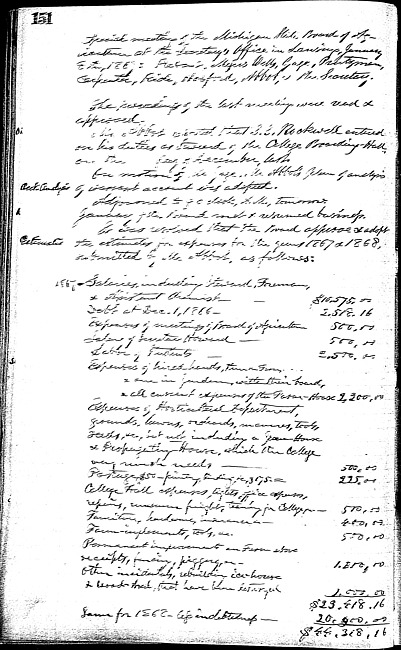 151
Special meeting of the Michigan State Board of Ag-
riculture at the Secretary's Office in Lansing, January
8th, 1867: Present, Messrs Wells, Gage, Prentiss
Carpenter, Abbot, & the Secretary.
The proceedings of the last meeting were read &
approved.
Abbot stated that Rockwell entered
on his duties as Steward of the College Boarding Hall,
on the day of December, last.
On motion of Mr Gage, Mr Abbot's plan of analysis
of current account was adopted.
Adjourned to o'clock, A.M., tomorrow.
January 9 the Board met & resumed business.
Estimates
It was resolved that the Board approve & adopt
the estimates for expenses for the years 1867 & 1868,
submitted by Mr Abbot, as follows:
1867 Salaries, including Steward, Foreman,
& Assistant Chemist — $10,575.00
Debt at Dec. 1, 1866 — 2,518.16
Expenses of meetings of Board of Agriculture 500,00
Salary of Secretary Howard — 500,00
Labor of Students — 2,500.00
Expenses of hired hands, three on Farm
& one in garden, with their board,
& all current expenses of the Farm-House 2,200,00
Expenses of Horticultural Department,
grounds, lawns, orchards, manures, tools,
seeds, &c., but not including a Green House
& Propagating House, which the College
very much needs — 500,00
Postage, $50 – printing, 225,00
College Hall expenses, lights, office expenses,
repairs, museum freight, for College — 500,00
Furniture, hardware, insurance — 400,00
Farm-implements, tools, &c. 500,00
Permanent improvement on Farm above
receipts, fencing, piggery — 1,200,00
Other incidentals, rebuilding ice-house
& wood-shed, that have been destroyed 1,000.00
$23,418.16
Same for 1868 – less indebtedness — 20,900.00
$44,318,16